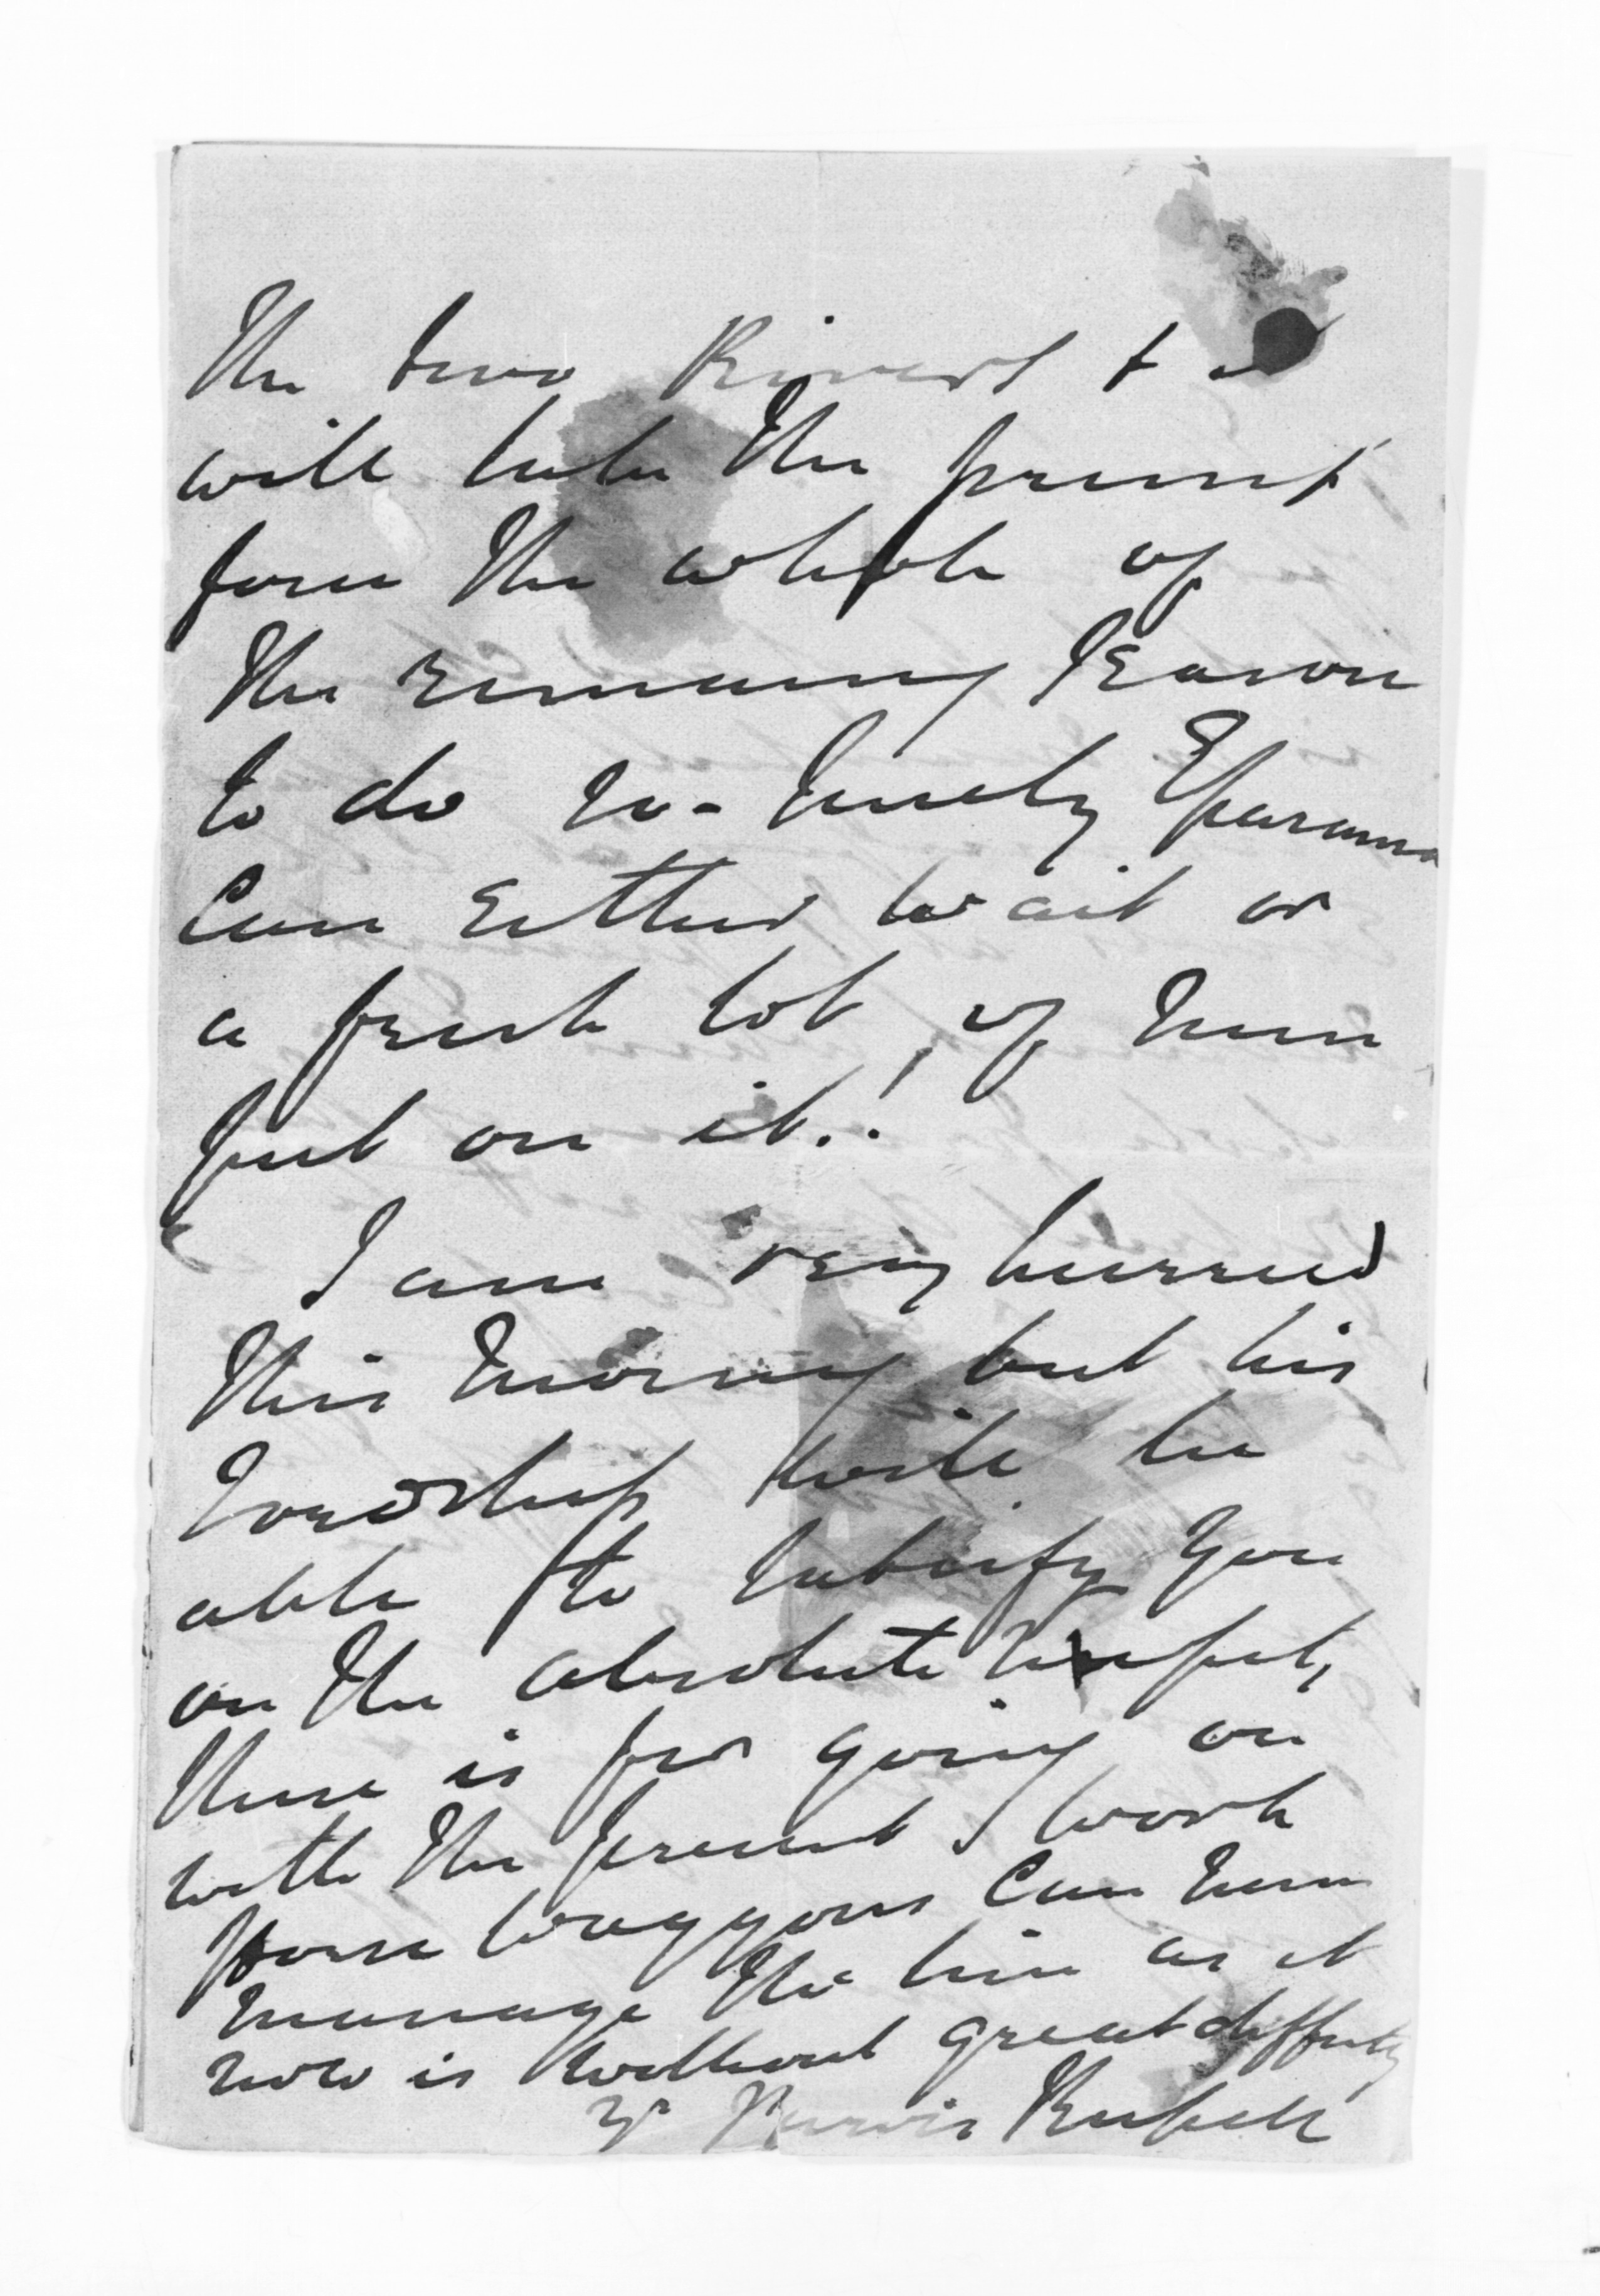 The two Rivers & it
will take the present
force the whole of
the remaining Season
to do so - Surely Esparanza
Can Either wait or
a fresh lot of men
put on it.!
I am very hurried
this morning but his
Lordship will be
able to satisfy you
on the absolute necessity
there is for going on
with the present work
Horse Waggons Can now
manage the line as it
now is without great difficulty
Yr Jarvis Russell